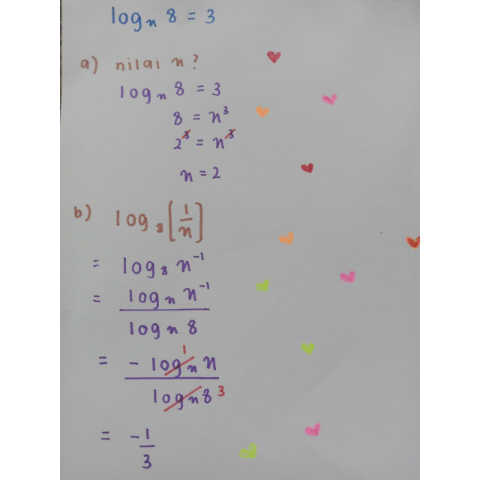 logₙ 8 = 3
a) nilai n ?
logₙ 8 = 3
8 = n³
2³ = n³
n = 2
b) log₈ [1/n]
= log₈ n⁻¹
= logₙ n⁻¹
logₙ 8
= - logₙ n 1
logₙ 8 3
= -1
3